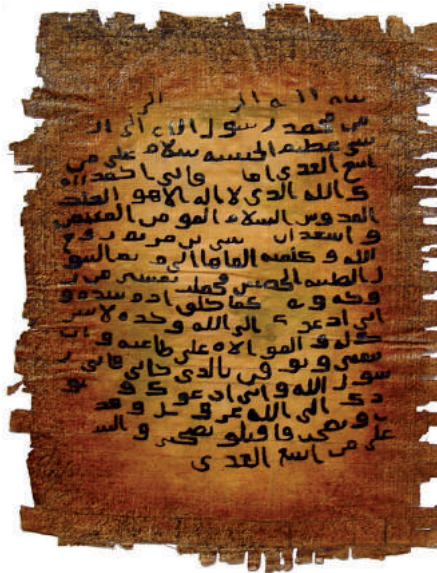 بسم الله الر الر
من محمد رسول الله الى ال
شي عظيم الحبشه سلام على من
اتبع الهدى اما فاني احمد اليه
ك الله الذي لا اله الا هو الملك
القدوس السلام المومن المهيمن
و اشهد ان عيسى بن مريم روح
الله و كلمته القاها الى مريم البتو
ل الطيبه الحصينه فحملت بعيسى من ر
وحه و كما خلق ادم بيده و
اني ادعوك الى الله وحده لا شر
يك له و الموالاه على طاعته و ان
تتبعني و توقن بالذي جاني فاني ر
سول الله و اني ادعوك و
دك الى الله عز و جل و قد
و نصحت فاقبلو نصيحتي و الس
على من اتبع الهدى